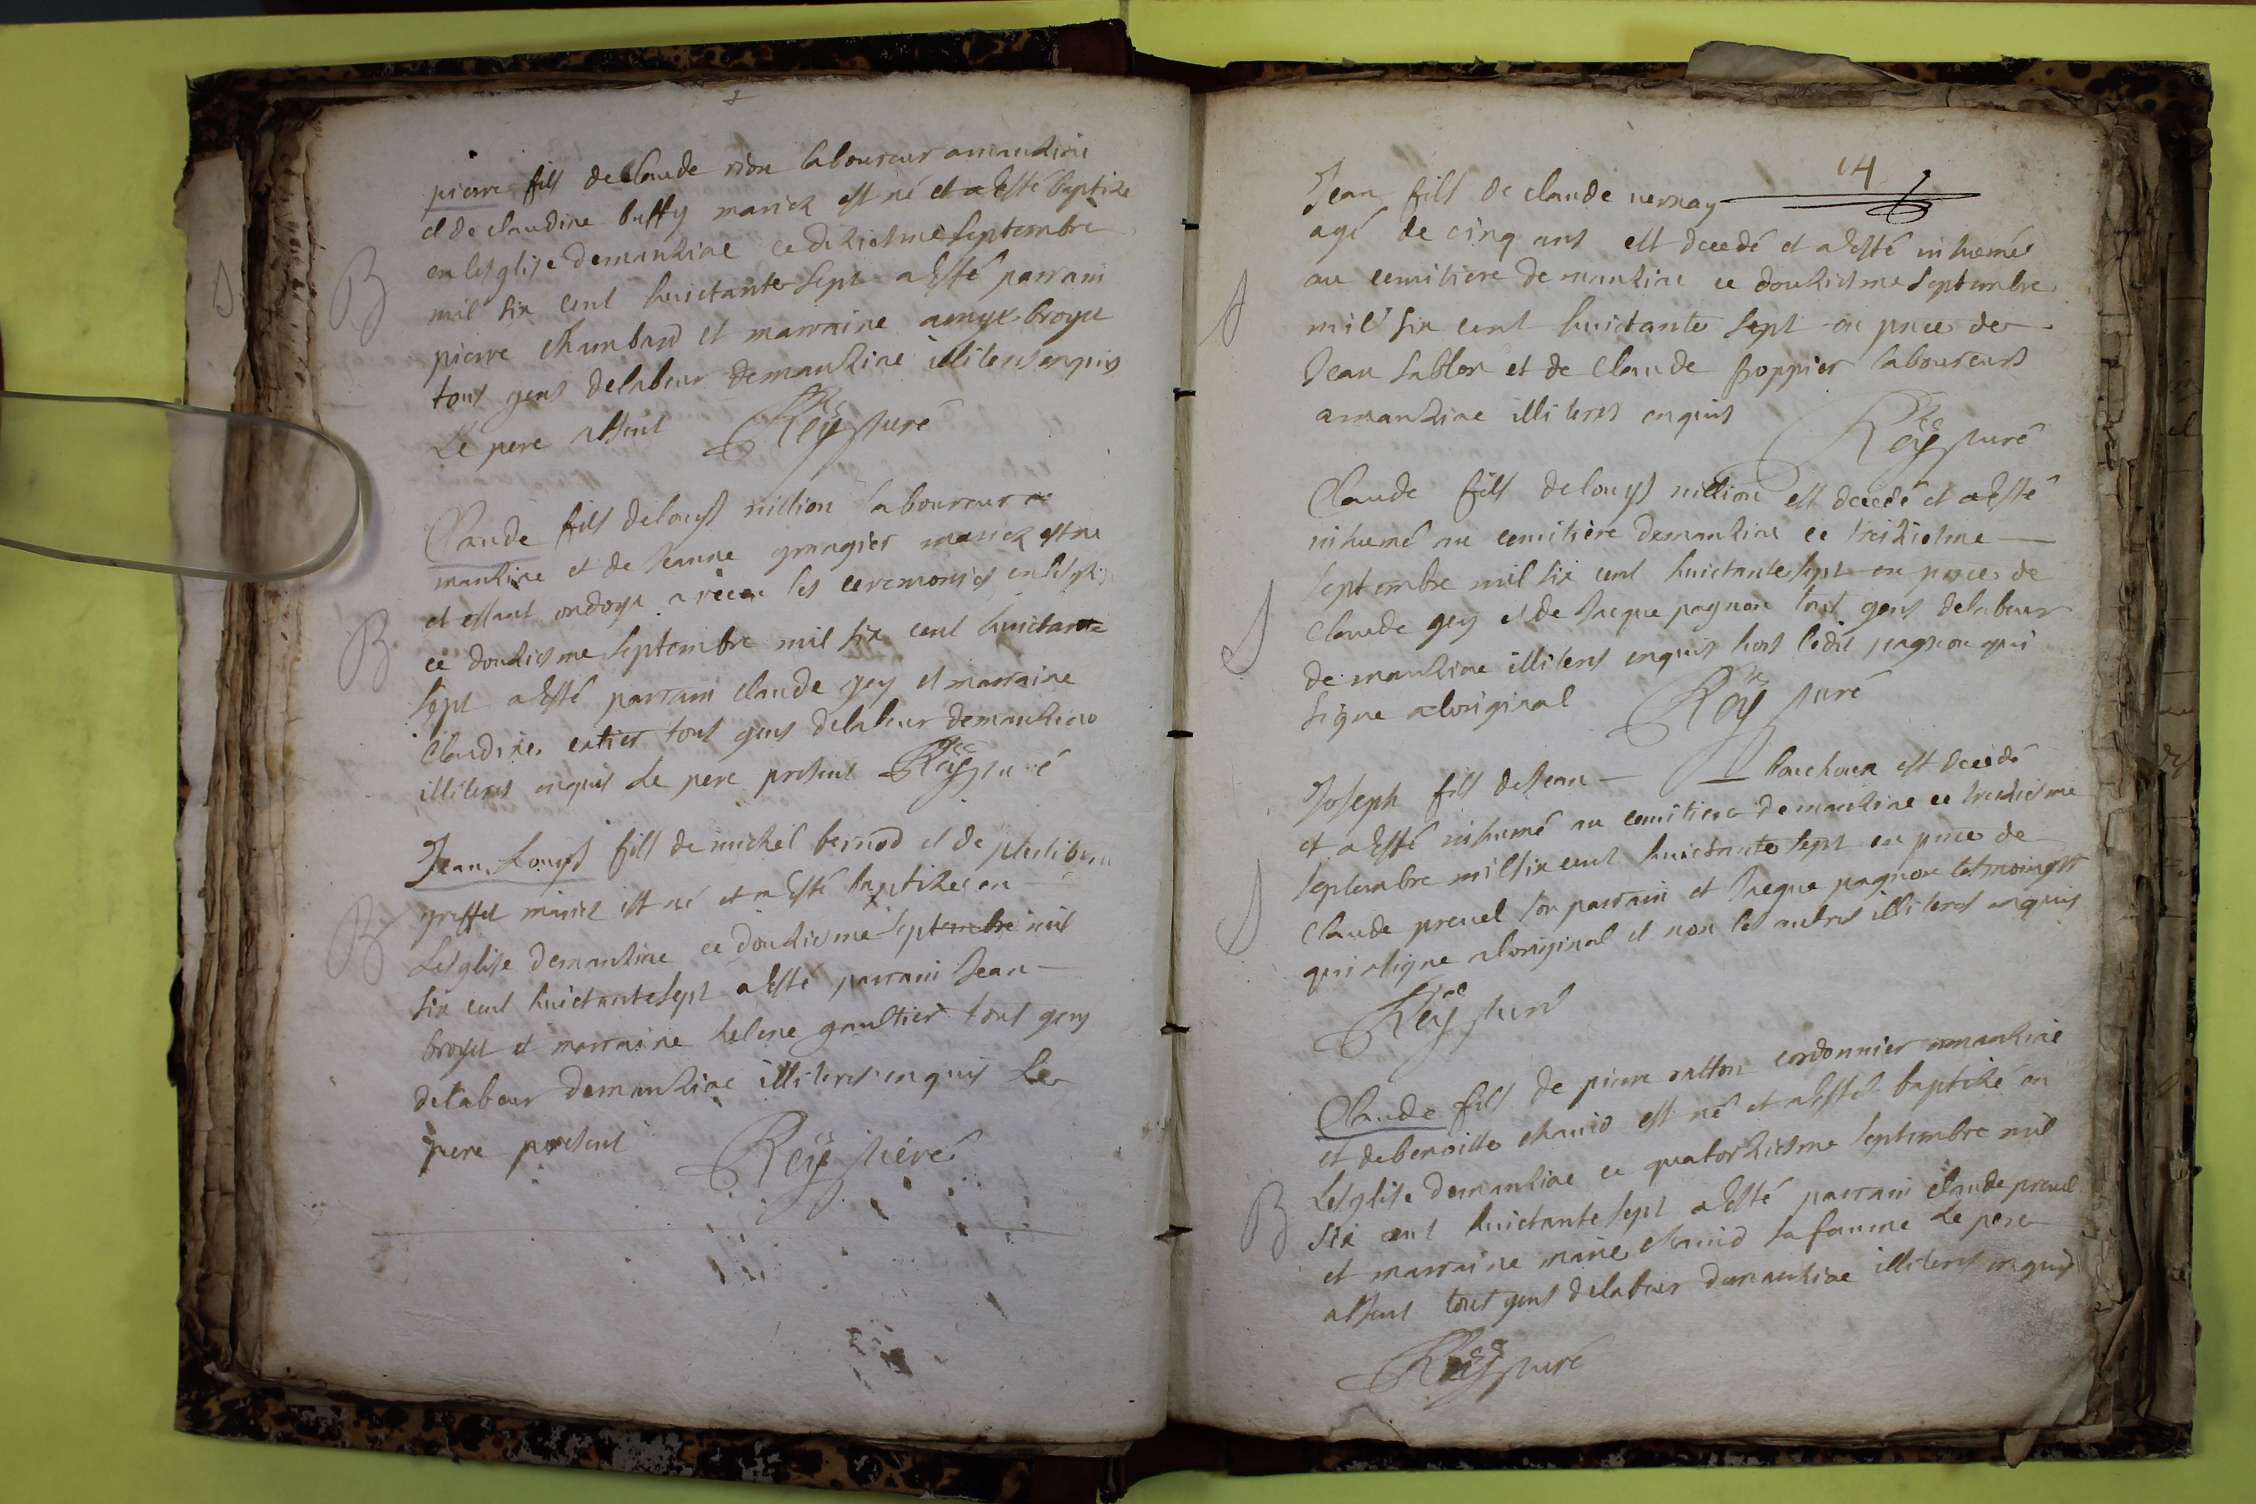 pierre fils de Claude rion laboureur amanziac
et de claudine buffy mariez est né et a esté baptizé
en lesglise demanziac ce dixiesme septembre
B
mil six cent huictante sept a esté parrain
pierre chambard et marraine amye broyer
tous gens delabeur demanziac illiteres enquis
Le pere absent Rey curé
Claude fils de louys nillion laboureur a
manziac et de Jeanne grangier mariez est né
et estant ondoyé a receu les ceremonies en lesglise
B
ce douziesme septembre mil six cent huictante
sept a esté parrain claude gey et marraine
Claudine catier tous gens delabeur demanziac
illiteres enquis Le pere present Rey curé
Jean Louys fils de michel bernod et de philiberte
greffet mariez est né et a esté baptizé en
B
Lesglise demanziac ce douziesme septembre mil
six cent huictante sept a esté parrain Jean
broyer et marraine helene gaultier tous gens
delabeur demanziac illiteres enquis Le
pere present Rey curé
14
Jean fils de claude vernay
agé de cinq ans est decedé et a esté inhumé
S
au cemitiere de manziac ce douziesme septembre
mil six cent huictante sept en pnce de
Jean sablon et de Claude froppier laboureurs
a manziac illiteres enquis Rey curé
Claude fils de louys nillion est decedé et a esté
inhumé au cemitiere demanziac ce treiziesme
septembre mil six cent huictante sept en pnce de
S
Claude gey et de Jacque pagnon tous gens delabeur
de manziac illiteres enquis hors ledit pagnon qui
signe aloriginal Rey curé
Joseph fils de Jean bouchoux est decedé
et a esté inhumé au cemitiere demanziac ce treiziesme
septembre mil six cent huictante sept en pnce de
S
Claude prevel son parrain et Jacque pagnon tesmoings
qui asigne aloriginal et non les autres illiteres enquis
Rey curé
Claude fils de pierre ratton cordonnier amanziac
et de benoitte chanid est né et a esté baptizé en
Lesglise demanziac ce quatorziesme septembre mil
B
six cent huictante sept a esté parrain claude prevel
et marraine marie chanid sa femme Le pere
absent tous gens delabeur demanziac illiteres enquis
Rey curé